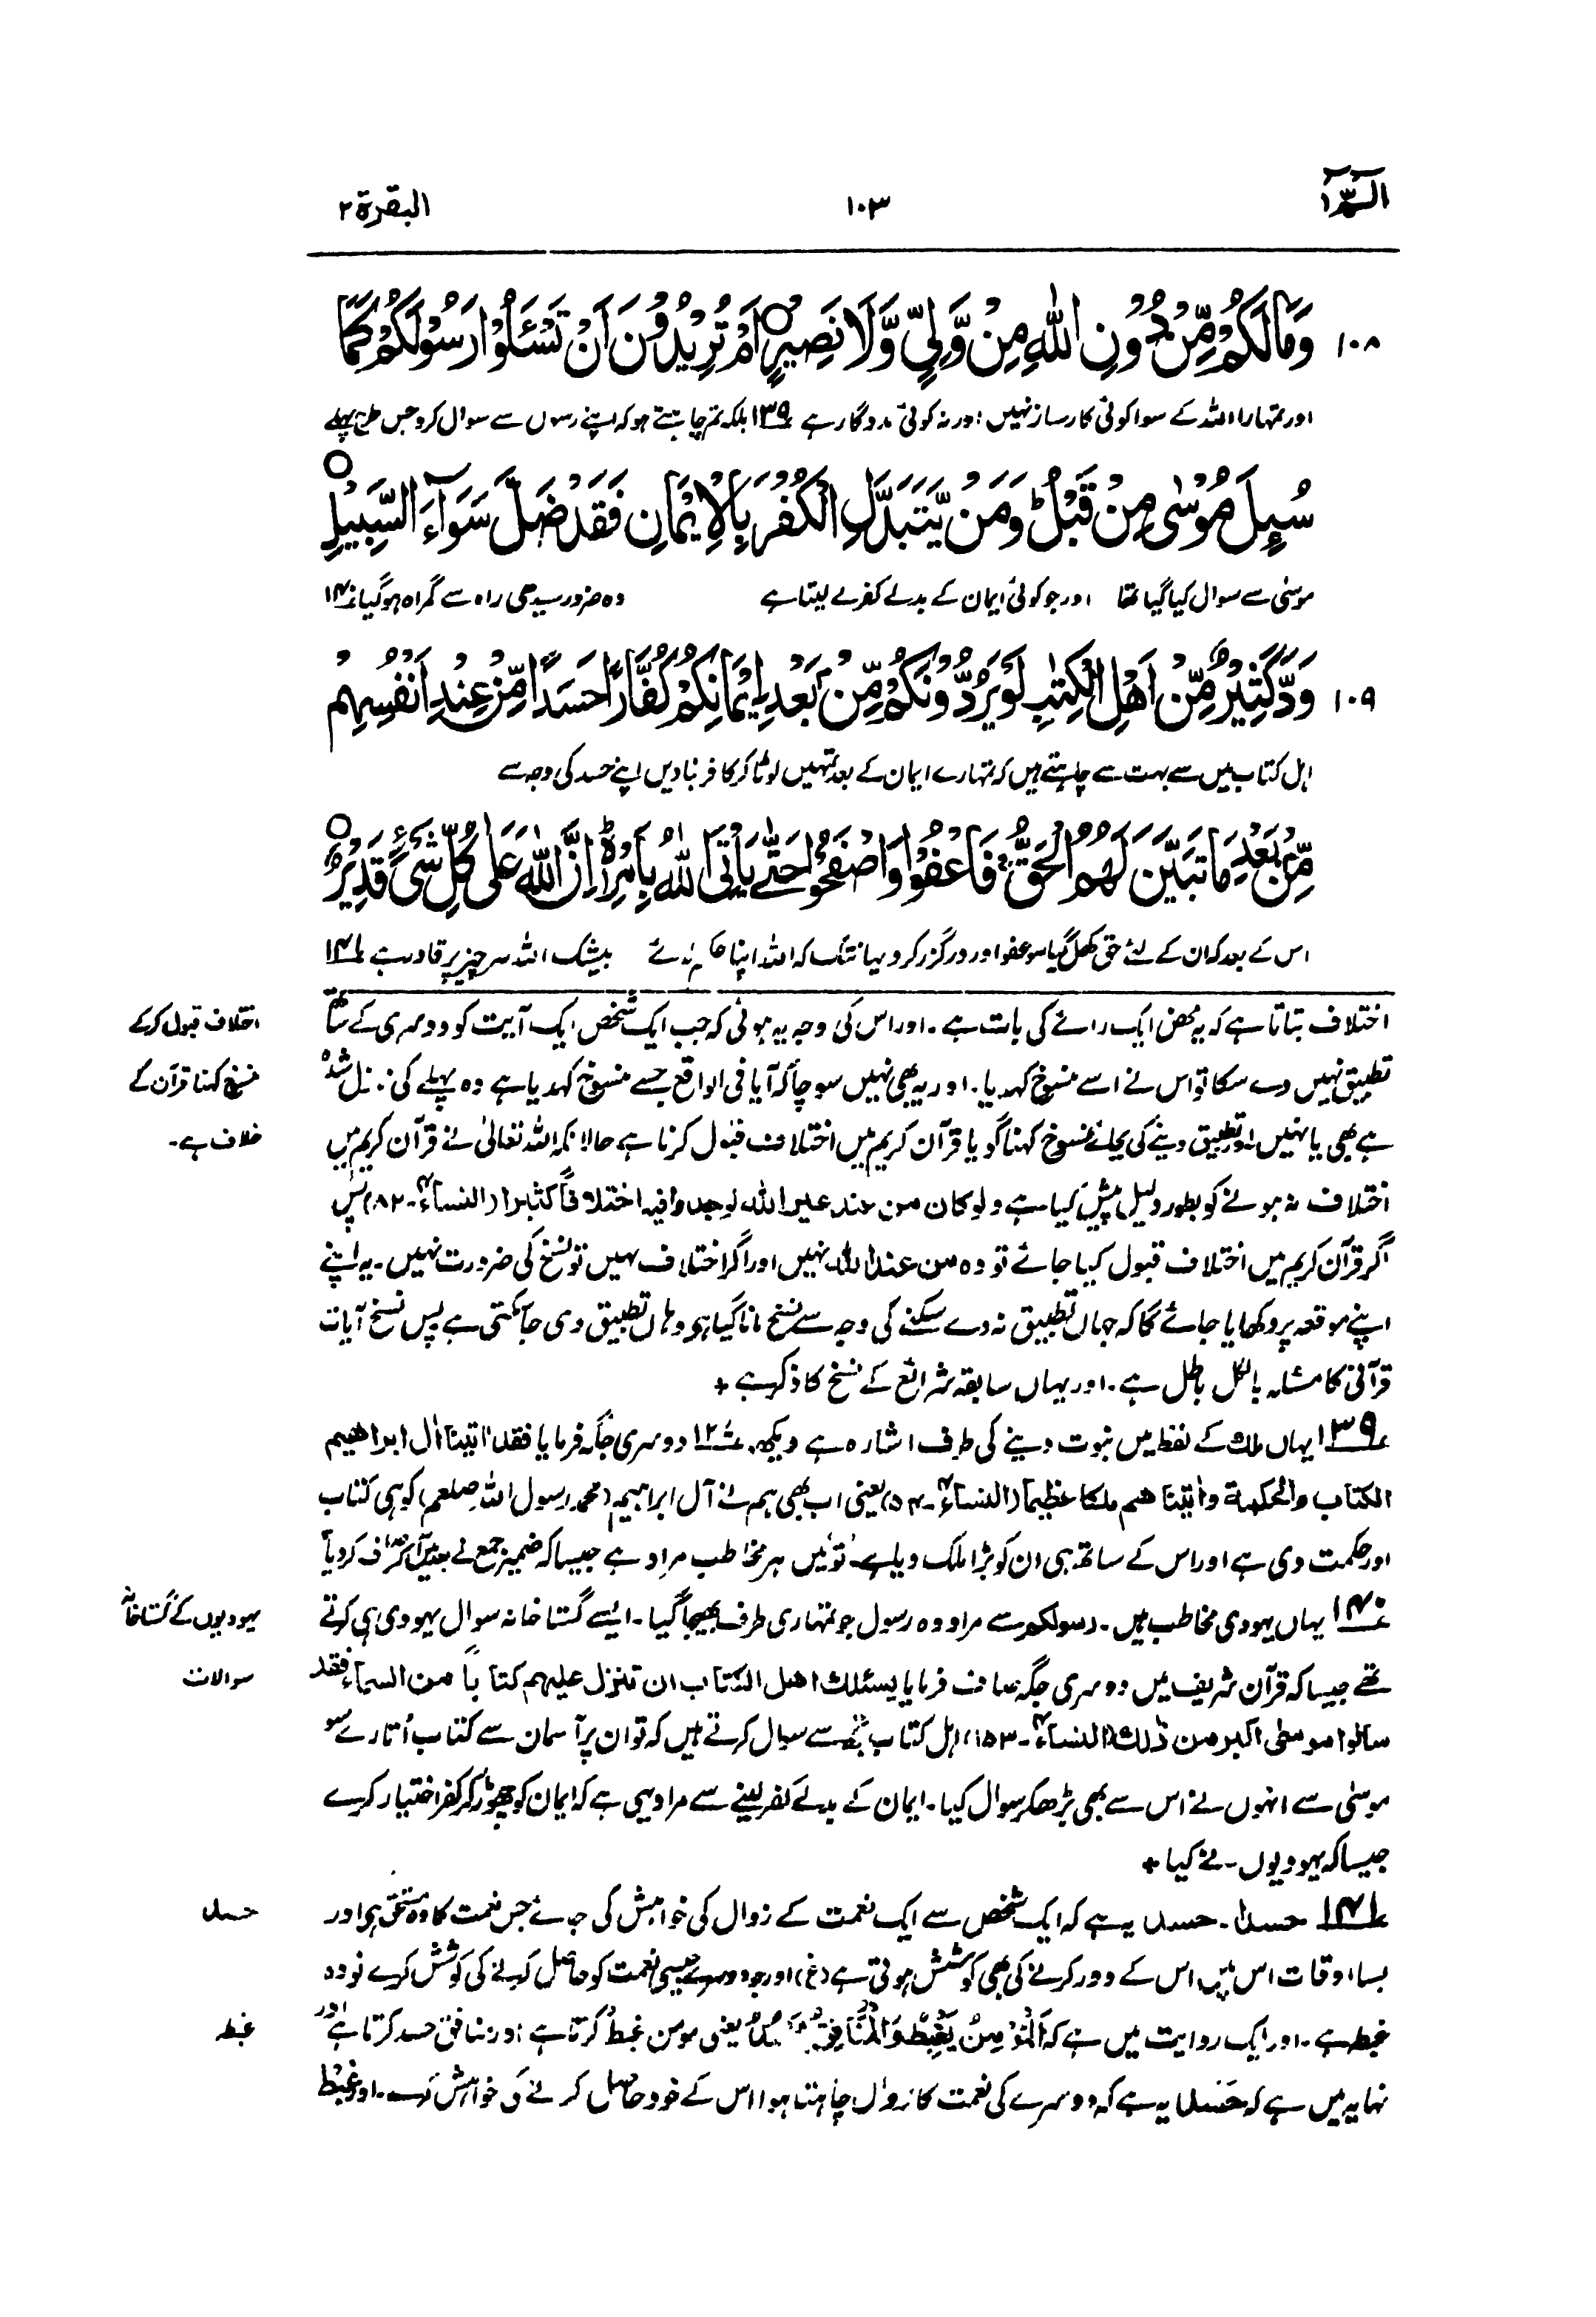 الٓمّٓ ۱
۱۰۳
البقرة ۲
۱۰۸ وَمَا لَكُمْ مِّنْ دُوْنِ اللّٰهِ مِنْ وَّلِيٍّ وَّلَا نَصِيْرٍ ○ اَمْ تُرِيْدُوْنَ اَنْ تَسْـَٔلُوْا رَسُوْلَكُمْ كَمَا
اور تمہارا اللہ کے سوا کوئی کارساز نہیں اور نہ کوئی مددگار ہے ۱۳۹ بلکہ تم چاہتے ہو کہ اپنے رسول سے سوال کرو جس طرح پہلے
سُىِٕلَ مُوْسٰى مِنْ قَبْلُ ؕ وَمَنْ يَّتَبَدَّلِ الْكُفْرَ بِالْاِيْمَانِ فَقَدْ ضَلَّ سَوَآءَ السَّبِيْلِ ○
موسیٰ سے سوال کیا گیا تھا اور جو کوئی ایمان کے بدلے کفر لے لیتا ہے وہ ضرور سیدھی راہ سے گمراہ ہوگیا ۱۴۰
۱۰۹ وَدَّ كَثِيْرٌ مِّنْ اَهْلِ الْكِتٰبِ لَوْ يَرُدُّوْنَكُمْ مِّنْۢ بَعْدِ اِيْمَانِكُمْ كُفَّارًا حَسَدًا مِّنْ عِنْدِ اَنْفُسِهِمْ
اہل کتاب میں سے بہت سے چاہتے ہیں کہ تمہارے ایمان کے بعد تمہیں لوٹا کر کافر بنا دیں اپنے حسد کی وجہ سے
مِّنْۢ بَعْدِ مَا تَبَيَّنَ لَهُمُ الْحَقُّ ۚ فَاعْفُوْا وَاصْفَحُوْا حَتّٰى يَاْتِىَ اللّٰهُ بِاَمْرِهٖ ؕ اِنَّ اللّٰهَ عَلٰى كُلِّ شَىْءٍ قَدِيْرٌ ○
اس کے بعد کہ ان کے لئے حق کھل گیا سو عفو اور درگزر کرو یہانتک کہ اللہ اپنا حکم لائے بیشک اللہ ہر چیز پر قادر ہے ۱۴۱
اختلاف بتاتا ہے کہ یہ محض ایک رائے کی بات ہے۔ اور اس کی وجہ یہ ہوئی کہ جب ایک شخص ایک آیت کو دوسری کے ساتھ
تطبیق نہیں دے سکا تو اس نے اسے منسوخ کہدیا۔ اور یہ بھی نہیں سوچا کہ آیا فی الواقع جسے منسوخ کہدیا ہے وہ پہلے کی نازل شدہ
ہے بھی یا نہیں اور تطبیق دینے کی بجائے منسوخ کہنا گویا قرآن کریم میں اختلاف قبول کرنا ہے حالانکہ اللہ تعالیٰ نے قرآن کریم میں
اختلاف نہ ہونے کو بطور دلیل پیش کیا ہے ولو کان من عند غیر اللہ لوجدوا فیہ اختلافاً کثیرا (النساء ۴-۸۲) پس
اگر قرآن کریم میں اختلاف قبول کیا جائے تو وہ من عند اللہ نہیں اور اگر اختلاف نہیں تو نسخ کی ضرورت نہیں۔ یہ اپنے
اپنے موقعہ پر دکھایا جائے گا کہ جہاں تطبیق نہ دے سکنے کی وجہ سے نسخ مانا گیا ہو وہاں تطبیق دی جا سکتی ہے پس نسخ آیات
قرآنی کا مسئلہ بالکل باطل ہے۔ اور یہاں سابقہ شرائع کے نسخ کا ذکر ہے +
اختلاف قبول کرکے
منسوخ کہنا قرآن کے
خلاف ہے۔
۱۳۹ یہاں ملک کے لفظ میں نبوت دینے کی طرف اشارہ ہے دیکھو دوسری جگہ فرمایا فقد اٰتینا اٰل ابراھیم
الکتاب والحکمة واٰتیناھم ملکا عظیماً (النساء ۴-۵۴) یعنی اب بھی ہم نے آل ابراہیم (محمد رسول اللہ صلعم) کو ہی کتاب
اور حکمت دی ہے اور اس کے ساتھ ہی ان کو بڑا ملک دیا ہے۔ تو میں ہر مخاطب مراد ہے جیسا کہ ضمیر جمع نے بعد میں آکر صاف کردیا
۱۴۰ یہاں یہودی مخاطب ہیں۔ رسولکم سے مراد وہ رسول جو تمہاری طرف بھیجا گیا۔ ایسے گستاخانہ سوال یہودی ہی کرتے
تھے جیسا کہ قرآن شریف میں دوسری جگہ صاف فرمایا یسئلک اھل الکتاب ان تنزل علیہم کتاباً من السماء فقد
سالوا موسیٰ اکبر من ذٰلک (النساء ۴-۱۵۳) اہل کتاب تجھ سے سوال کرتے ہیں کہ تو ان پر آسمان سے کتاب اُتارے سو
موسیٰ سے انہوں نے اس سے بھی بڑھکر سوال کیا۔ ایمان کے بدلے کفر لینے سے مراد یہی ہے کہ ایمان کو چھوڑ کر کفر اختیار کرے
جیسا کہ یہودیوں نے کیا +
یہودیوں کے گستاخانہ
سوالات
۱۴۱ حسدا۔ حسد یہ ہے کہ ایک شخص سے ایک نعمت کے زوال کی خواہش کی جائے جس نعمت کا وہ مستحق ہو اور
بسا اوقات اس میں اس کے دور کرنے کی بھی کوشش ہوتی ہے (غ) اور جو دوسرے جیسی نعمت کو حاصل کرنے کی کوشش کرے تو وہ
غبطہ ہے۔ اور ایک روایت میں ہے کہ اَلْمُؤْمِنُ یَغْبِطُ وَالْمُنَافِقُ یعنی مومن غبط کرتا ہے اور منافق حسد کرتا ہے اور
نہایہ میں ہے کہ حسد یہ ہے کہ دوسرے کی نعمت کا زوال چاہتا ہوا اس کے خود حاصل کرنے کی خواہش کرے۔ اور غبط
حسد
غبطہ